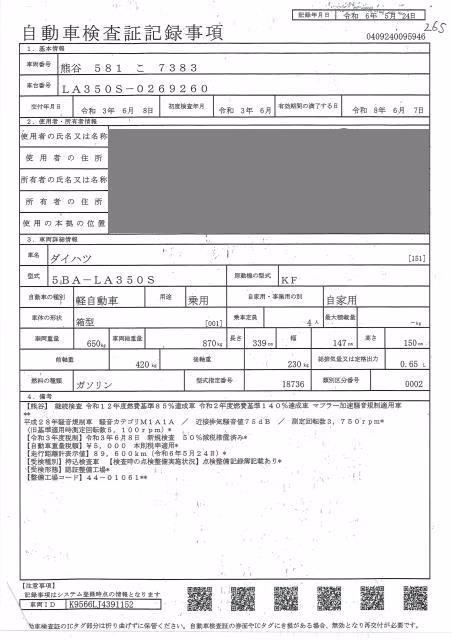 記録年月日 令和 6年 5月 24日
265
自動車検査証記録事項
0409240095946
1．基本情報
車両番号 熊谷 581 こ 7383
車台番号 LA350S-0269260
交付年月日 令和 3年 6月 8日 初度検査年月 令和 3年 6月 有効期間の満了する日 令和 8年 6月 7日
2．使用者・所有者情報
使用者の氏名又は名称
使用者の住所
所有者の氏名又は名称
所有者の住所
使用の本拠の位置
3．車両詳細情報
車名 ダイハツ [151]
型式 5BA-LA350S 原動機の型式 KF
自動車の種別 軽自動車 用途 乗用 自家用・事業用の別 自家用
車体の形状 箱型 [001] 乗車定員 4人 最大積載量 -kg
車両重量 650kg 車両総重量 870kg 長さ 339cm 幅 147cm 高さ 150cm
前軸重 420kg 後軸重 230kg 総排気量又は定格出力 0.65 L
燃料の種類 ガソリン 型式指定番号 18736 類別区分番号 0002
4．備考
【熊谷】 継続検査 令和12年度燃費基準85％達成車 令和2年度燃費基準140％達成車 マフラー加速騒音規制適用車
**
平成28年騒音規制車 騒音カテゴリM1A1A ／ 近接排気騒音値75dB ／ 測定回転数3，750rpm*
（旧基準適用時測定回転数5，100rpm）*
【令和3年度税制】令和3年6月8日 新規検査 50％減税措置済み*
【自動車重量税額】￥5，000 本則税率適用*
【走行距離計表示値】89，600km（令和6年5月24日）*
【受検種別】持込検査車 【検査時の点検整備実施状況】点検整備記録簿記載あり*
【受検形態】認証整備工場*
【整備工場コード】44-01061**
【注意事項】
記録事項はシステム登録時点の情報となります
車両ID K9566LJ4391152
動車検査証のICタグ部分は折り曲げずに保管ください。自動車検査証の券面やICタグにき損がある場合、無効となり再交付が必要です。